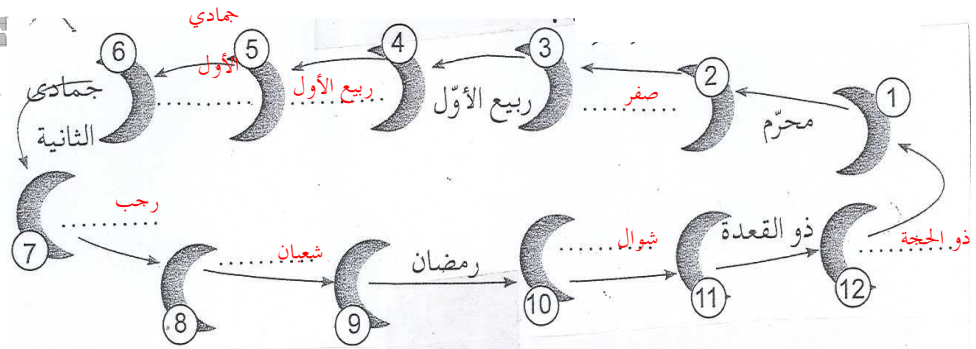 1
محرّم
2
صفر
3
ربيع الأوّل
4
ربيع الأول
5
جمادي
الأول
6
جمادى
الثانية
7
رجب
8
شعبان
9
رمضان
10
شوال
11
ذو القعدة
12
ذو الحجة